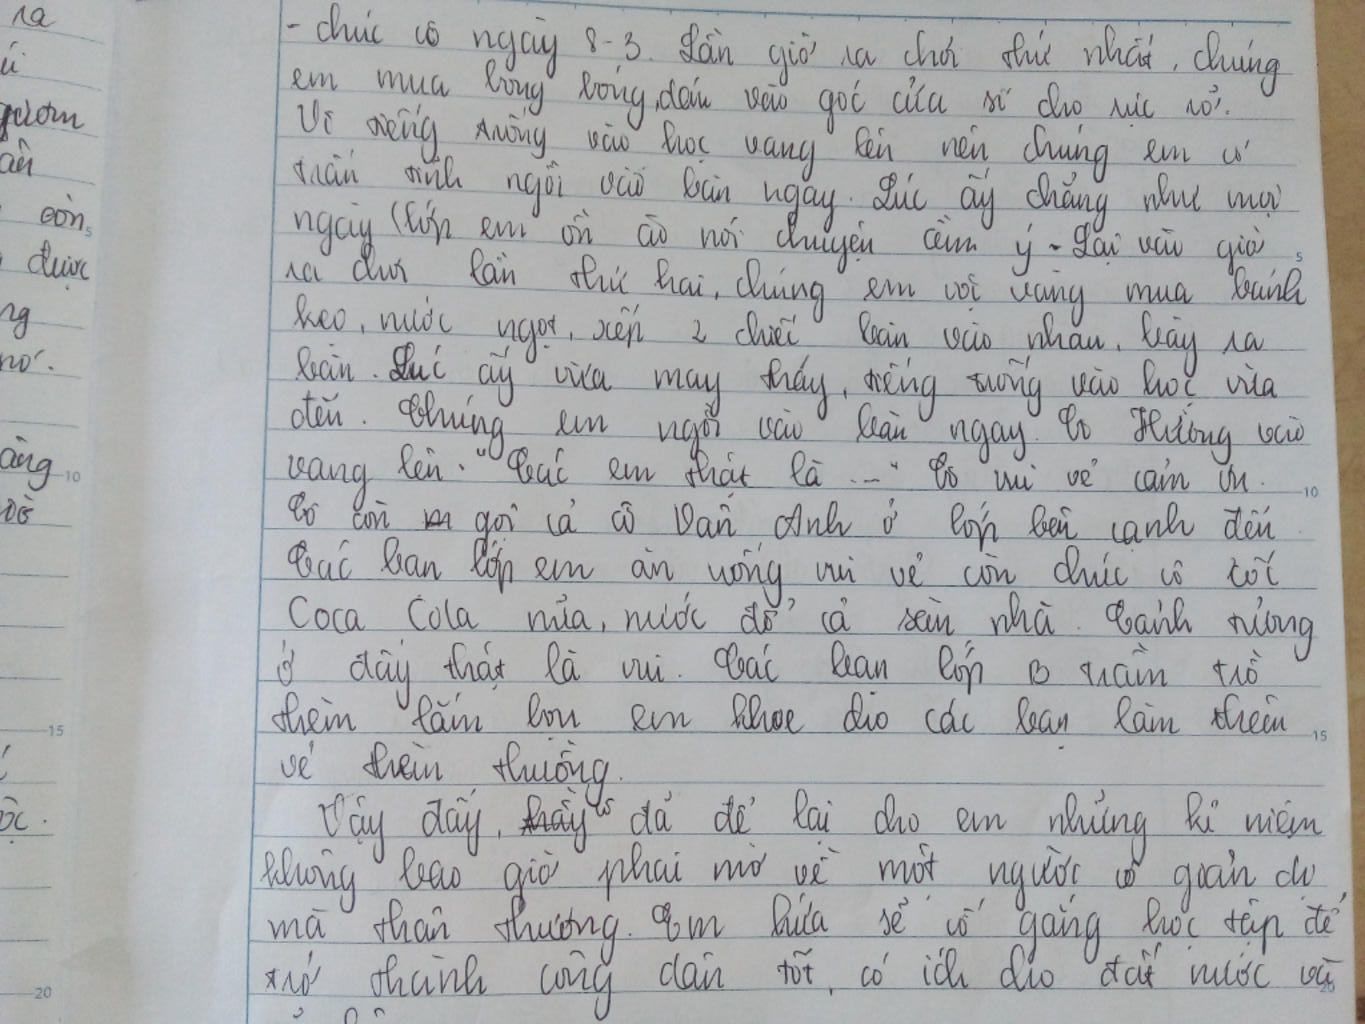 ra
gươm
còn
được
ng
nó.
àng
- chúc cô ngày 8-3. Lần giờ ra chơi thứ nhất, chúng
em mua bong bóng, dán vào góc cửa sổ cho rực rỡ.
Vì tiếng trống vào học vang lên nên chúng em cố
trấn tĩnh ngồi vào bàn ngay. Lúc ấy chẳng như mọi
ngày (lớp em ồn ào nói chuyện ầm ý - Lại vào giờ
ra chơi lần thứ hai, chúng em vội vàng mua bánh
kẹo, nước ngọt, xếp 2 chiếc bàn vào nhau, bày ra
bàn. Lúc ấy vừa may thấy, tiếng trống vào học vừa
đến. Chúng em ngồi vào bàn ngay. Cô Hường vào
vang lên. "Các em thật là ..." Cô vui vẻ cảm ơn.
Cô còn gọi cả cô Vân Anh ở lớp bên cạnh đến
Các bạn lớp em ăn uống vui vẻ còn chúc cô cốc
Coca Cola nữa, nước đổ cả sàn nhà. Cảnh tượng
ở đây thật là vui. Các bạn lớp B trầm trồ
thèm lắm bọn em khoe cho các bạn làm thêm
vẻ thèm thuồng.
Vậy đấy, cô đã để lại cho em những kỉ niệm
không bao giờ phai mờ về một người cô giản dị
mà thân thương. Em hứa sẽ cố gắng học tập để
trở thành công dân tốt, có ích cho đất nước và
5
10
15
5
10
15
20